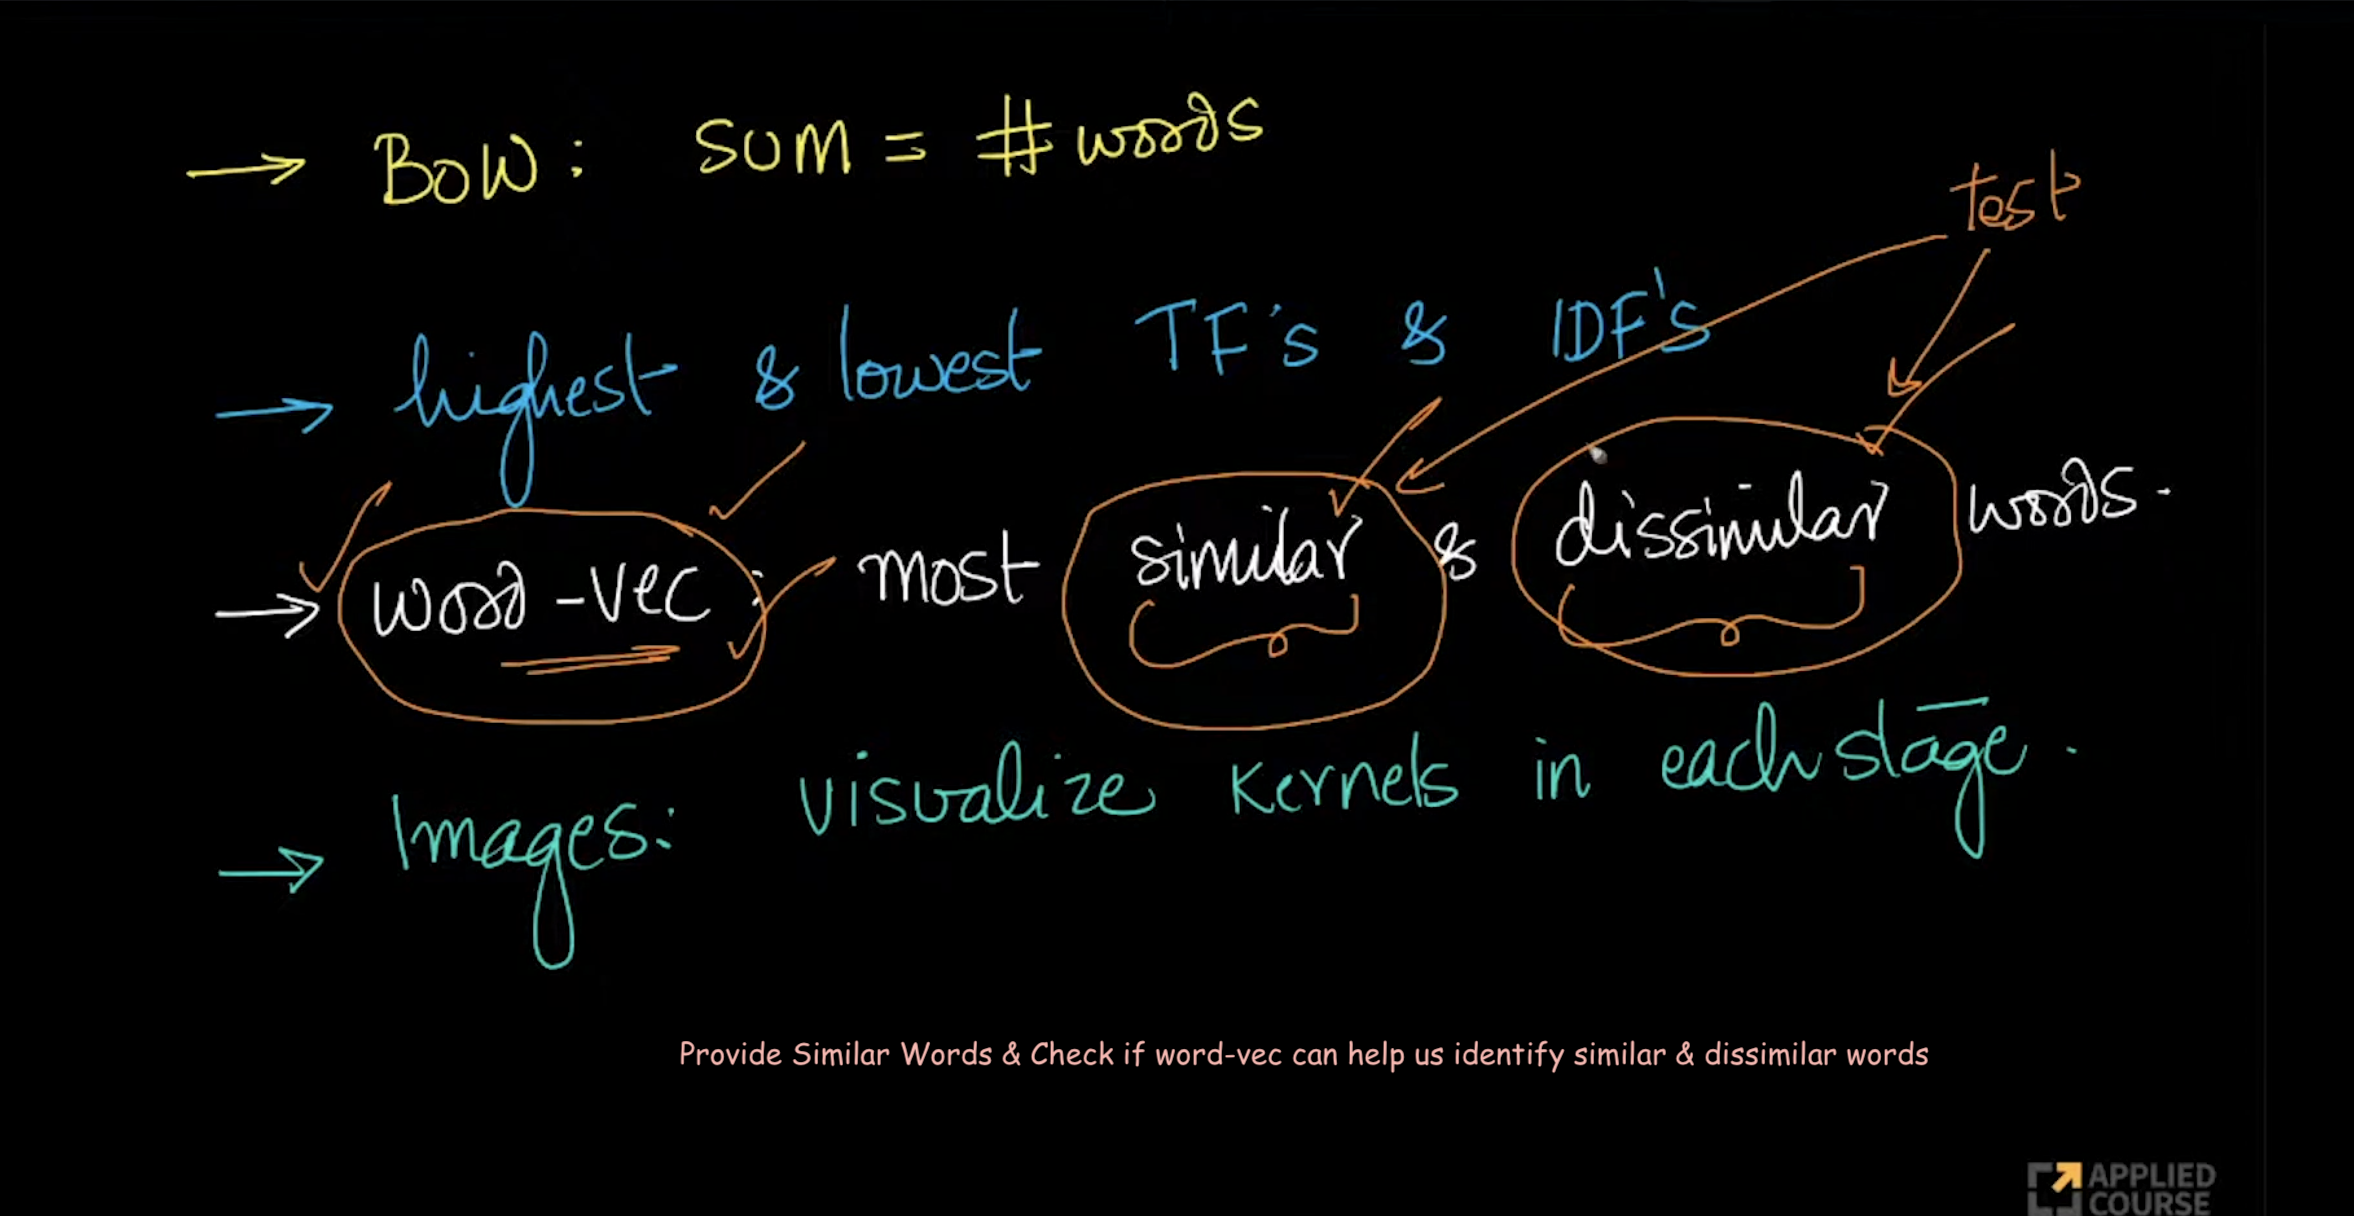 → BOW: SUM = # words
test
→ highest & lowest TF's & IDF's
→ word-vec: most similar & dissimilar words.
→ Images: visualize kernels in each stage.
Provide Similar Words & Check if word-vec can help us identify similar & dissimilar words
APPLIED
COURSE